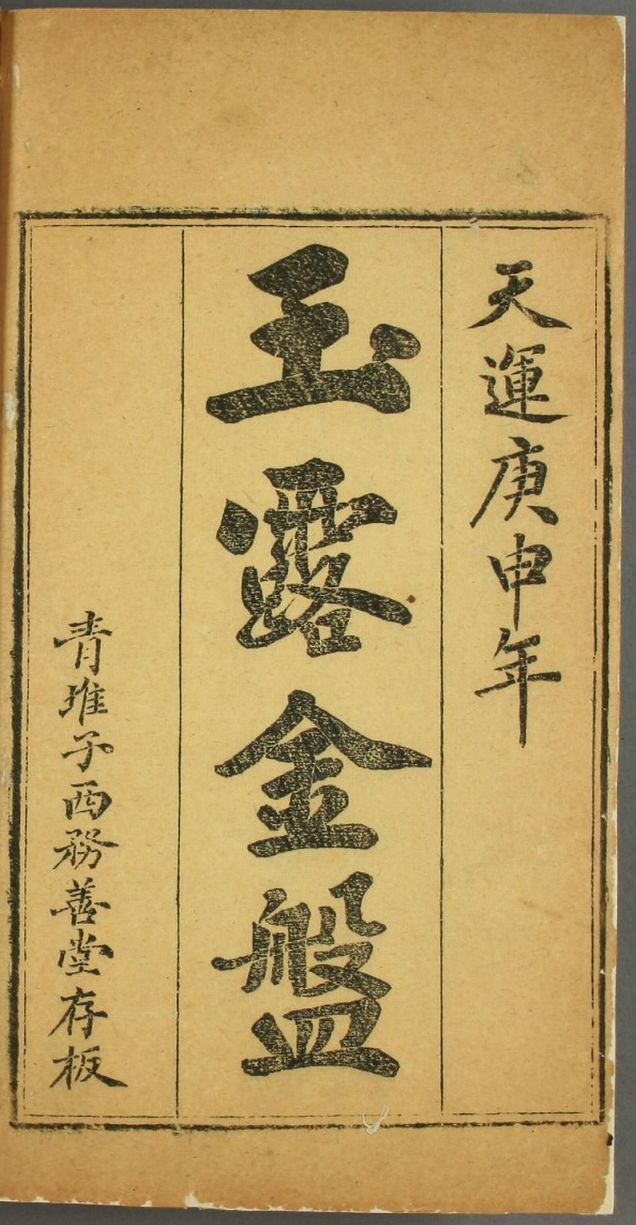 天運庚申年
玉露金盤
青堆子西務善堂存板